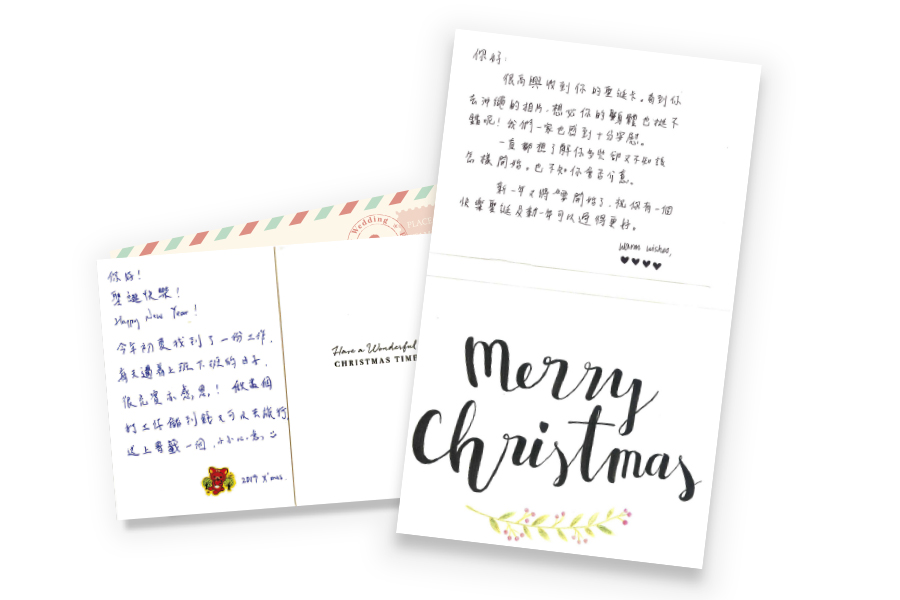 你好!
聖誕快樂!
Happy New Year!
今年初夏找到了一份工作,
每天過着上班下班的日子,
很充實亦感恩! 做這個
的工作儲到錢又可以去旅行
送上書籤一個,小小心意
2019 X'mas.
Have a Wonderful
CHRISTMAS TIME
Wedding
PLACE
你好:
很高興收到你的聖誕卡。看到你
去沖繩的相片,想必你的身體也挺不
錯呢!我們一家也感到十分安慰。
一直都想了解你多些卻又不知該
怎樣開始。也不知你會否介意。
新一年又將要開始了,祝你有一個
快樂聖誕及新一年可以過得更好。
Warm wishes,
Merry
Christmas